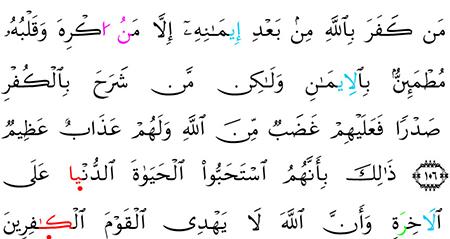 مَن كَفَرَ بِاللَّهِ مِنۢ بَعْدِ إِيمَـٰنِهِۦٓ إِلَّا مَنُ اكْرِهَ وَقَلْبُهُۥ
مُطْمَئِنٌّۢ بِالِايمَـٰنِ وَلَـٰكِن مَّن شَرَحَ بِالْكُفْرِ
صَدْرًا فَعَلَيْهِمْ غَضَبٌ مِّنَ اللَّهِ وَلَهُمْ عَذَابٌ عَظِيمٌ
﴿١٠٦﴾ ذَٰلِكَ بِأَنَّهُمُ اسْتَحَبُّوا۟ الْحَيَوٰةَ الدُّنْيا عَلَى
الَاخِرَةِ وَأَنَّ اللَّهَ لَا يَهْدِى الْقَوْمَ الْكـٰفِرِينَ